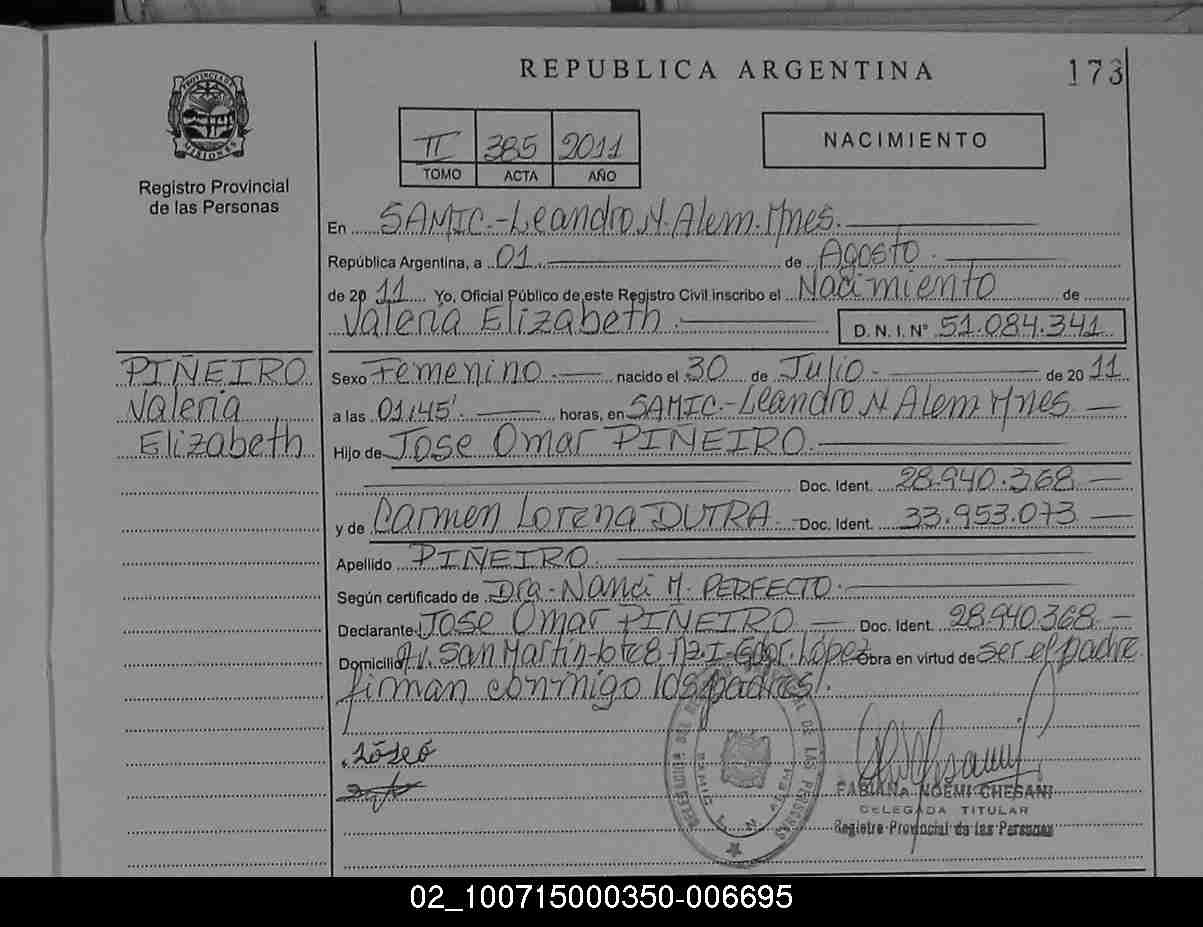 REPUBLICA ARGENTINA
173
PROVINCIA DE
MISIONES
Registro Provincial
de las Personas
II 385 2011
TOMO ACTA AÑO
NACIMIENTO
En SAMIC.-Leandro N. Alem. Mnes.
República Argentina, a 01 de Agosto
de 2011 Yo, Oficial Público de este Registro Civil inscribo el Nacimiento de
Valeria Elizabeth. D. N. I. N° 51.084.341
PIÑEIRO
Valeria
Elizabeth
Sexo Femenino.- nacido el 30 de Julio.- de 2011
a las 01,45'. horas, en SAMIC.-Leandro N. Alem Mnes
Hijo de Jose Omar PIÑEIRO.
Doc. Ident. 28.940.368
y de Carmen Lorena DUTRA. Doc. Ident. 33.953.073
Apellido PIÑEIRO.
Según certificado de Dra.-Nanci M. PERFECTO.
Declarante Jose Omar PIÑEIRO Doc. Ident. 28.940.368
Domicilio Av. San Martín-lote 8 Mz I-Gdor. López Obra en virtud de ser el padre
firman conmigo los padres.
FABIANA NOEMI CHESANI
DELEGADA TITULAR
Registro Provincial de las Personas
02_100715000350-006695